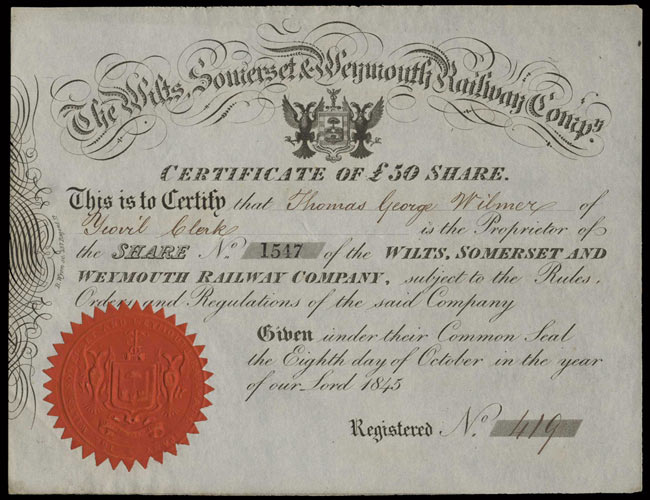 The Wilts, Somerset & Weymouth Railway Compy.
CERTIFICATE OF £50 SHARE.
This is to Certify that Thomas George Wilmer of
Yeovil Clerk is the Proprietor of
the SHARE No. 1547 of the WILTS, SOMERSET AND
WEYMOUTH RAILWAY COMPANY, subject to the Rules,
Orders and Regulations of the said Company
Given under their Common Seal
the Eighth day of October in the year
of our Lord 1845
Registered No. 419